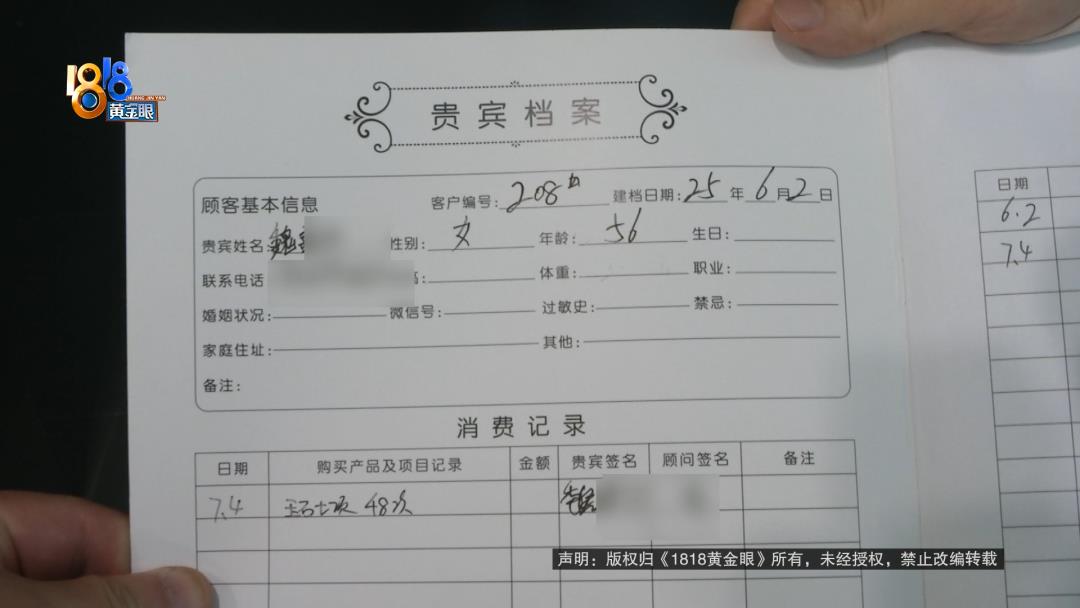 1818
HUANG JIN YAN
黄金眼
贵宾档案
顾客基本信息 客户编号: 208 建档日期: 25 年 6 月 2 日
贵宾姓名: 性别: 女 年龄: 56 生日:
联系电话 体重: 职业:
婚姻状况: 微信号: 过敏史: 禁忌:
家庭住址: 其他:
备注:
消费记录
日期 购买产品及项目记录 金额 贵宾签名 顾问签名 备注
7.4 48次
日期
6.2
7.4
声明：版权归《1818黄金眼》所有，未经授权，禁止改编转载